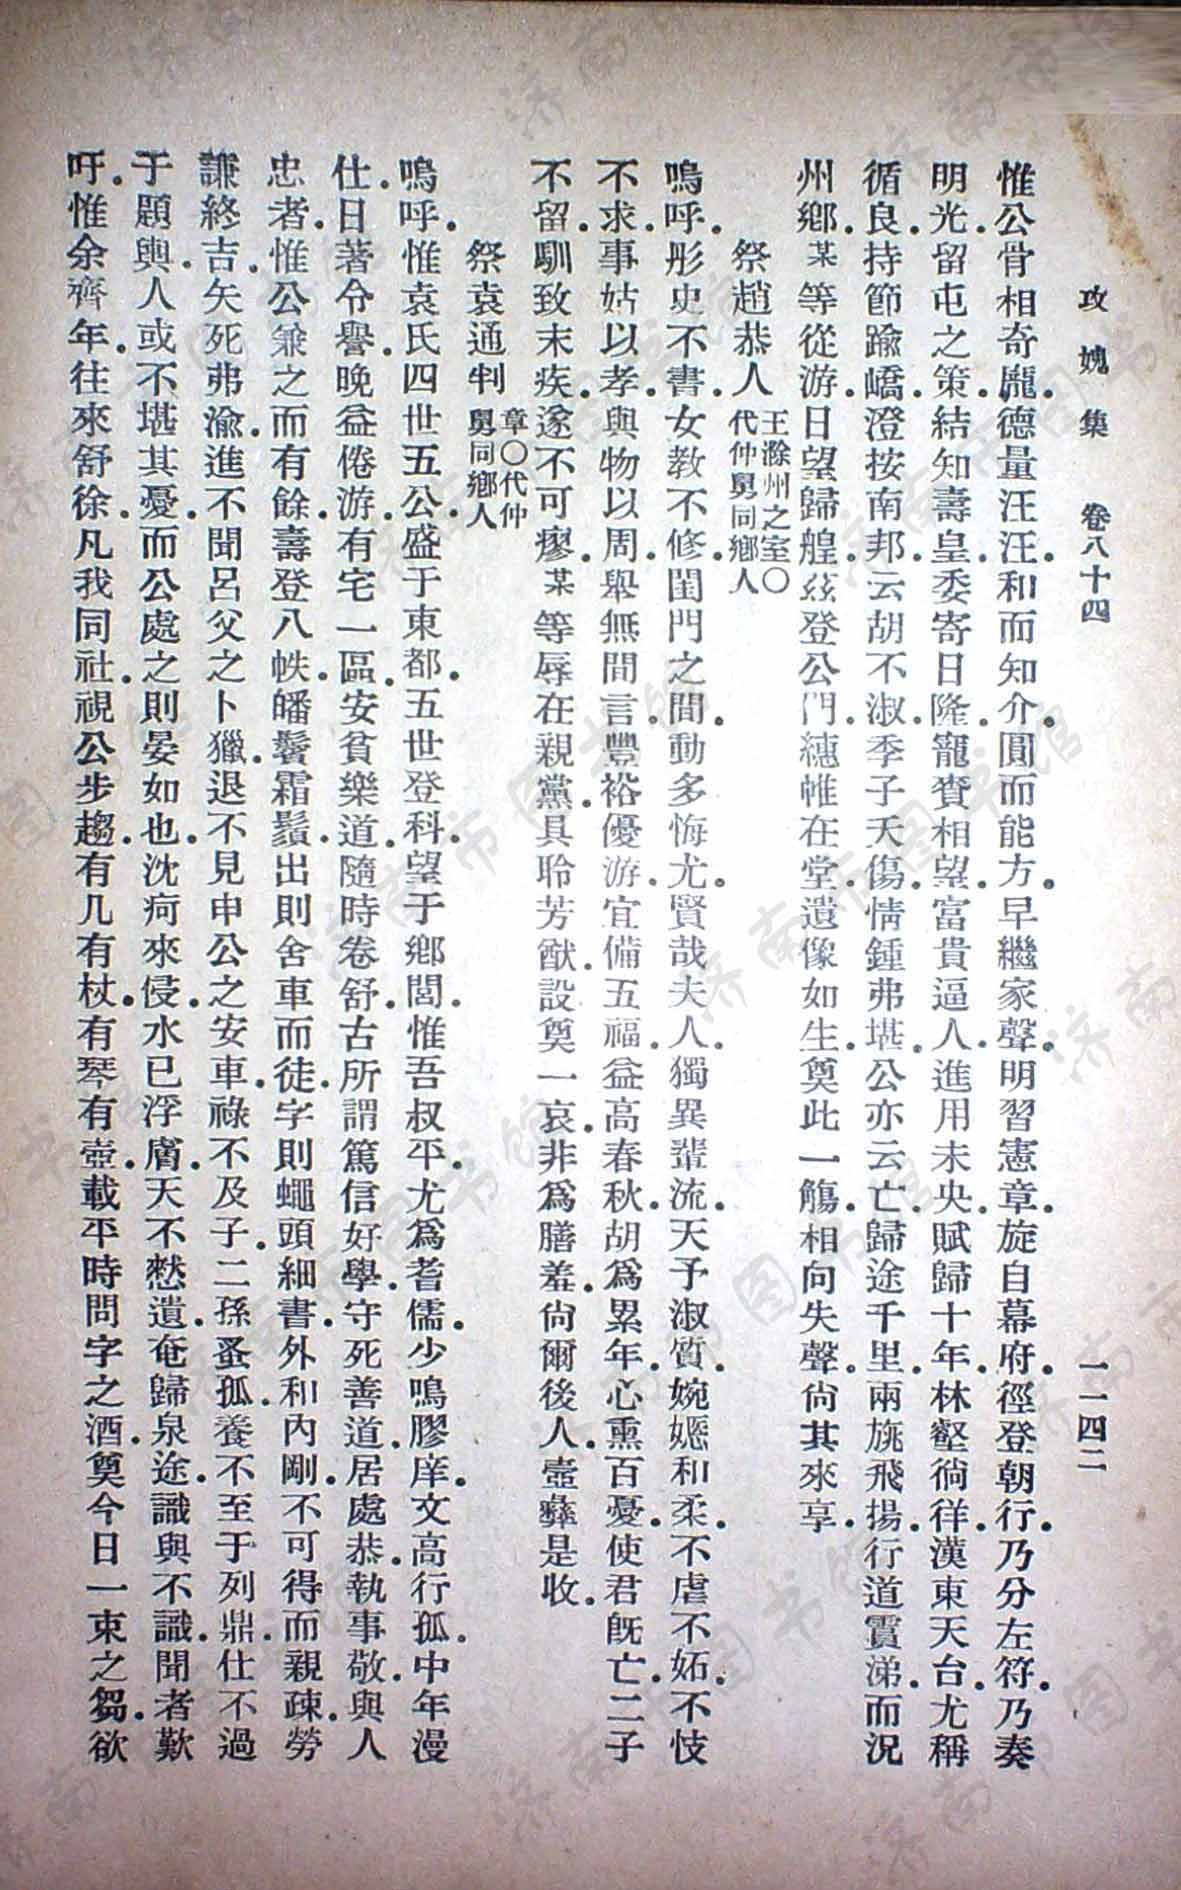 攻媿集　卷八十四　一一四二
惟公骨相奇龐。德量汪汪。和而知介。圓而能方。早繼家聲。明習憲章。旋自幕府。徑登朝行。乃分左符。乃奏
明光。留屯之策。結知壽皇。委寄日隆。寵賚相望。富貴逼人。進用未央。賦歸十年。林壑徜徉。漢東天台。尤稱
循良。持節踰嶠。澄按南邦。云胡不淑。季子夭傷。情鍾弗堪。公亦云亡。歸途千里。兩旐飛揚。行道霣涕。而況
州鄉。某等從游。日望歸艎。玆登公門。繐帷在堂。遺像如生。奠此一觴。相向失聲。尙其來享。
祭趙恭人　王滁州之室〇代仲舅同鄉人
嗚呼。彤史不書。女教不修。閨門之間。動多悔尤。賢哉夫人。獨異輩流。天予淑質。婉嫕和柔。不虐不妬。不忮
不求。事姑以孝。與物以周。舉無間言。豐裕優游。宜備五福。益高春秋。胡爲累年。心熏百憂。使君旣亡。二子
不留。馴致末疾。遂不可瘳。某等辱在親黨。具聆芳猷。設奠一哀。非爲膳羞。尙爾後人。壺彝是收。
祭袁通判　章〇代仲舅同鄉人
嗚呼。惟袁氏四世五公。盛于東都。五世登科。望于鄉閭。惟吾叔平。尤爲耆儒。少鳴膠庠。文高行孤。中年漫
仕。日著令譽。晚益倦游。有宅一區。安貧樂道。隨時卷舒。古所謂篤信好學。守死善道。居處恭。執事敬。與人
忠者。惟公兼之而有餘。壽登八帙。皤鬢霜鬚。出則舍車而徒。字則蠅頭細書。外和內剛。不可得而親疎。勞
謙終吉。矢死弗渝。進不聞呂父之卜獵。退不見申公之安車。祿不及子。二孫蚤孤。養不至于列鼎。仕不過
于題輿。人或不堪其憂。而公處之則晏如也。沈疴來侵。水已浮膚。天不憖遺。奄歸泉途。識與不識。聞者歎
吁。惟余齊年。往來舒徐。凡我同社。視公步趨。有几有杖。有琴有壺。載平時問字之酒。奠今日一束之芻。欲